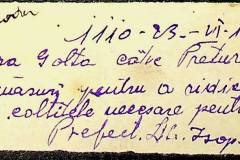 1110-23.-VI-1
ra Golta către Pretur
pentru a ridic
coltile necesare pentr
Prefect. Lt. Isop